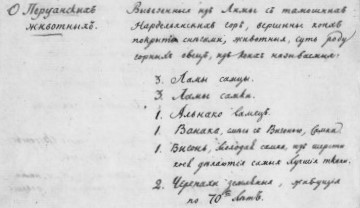 О Перуанскихъ
животныхъ.
Вывезенныя изъ Лимы съ тамошнихъ
Кардельянскихъ горъ, вершины коихъ
покрыты снегами, животныя, суть роду
горныхъ овецъ, изъ коихъ называемыя:
3. Ламы самцы.
3. Ламы самки.
1. Альпако самецъ.
1. Ванака, самка.
1. Вигонь, молодая самка, изъ шерсти
коей делаются самыя лучшiя ткани.
2. Черепахи земляныя, живущiя
по 70ти летъ.